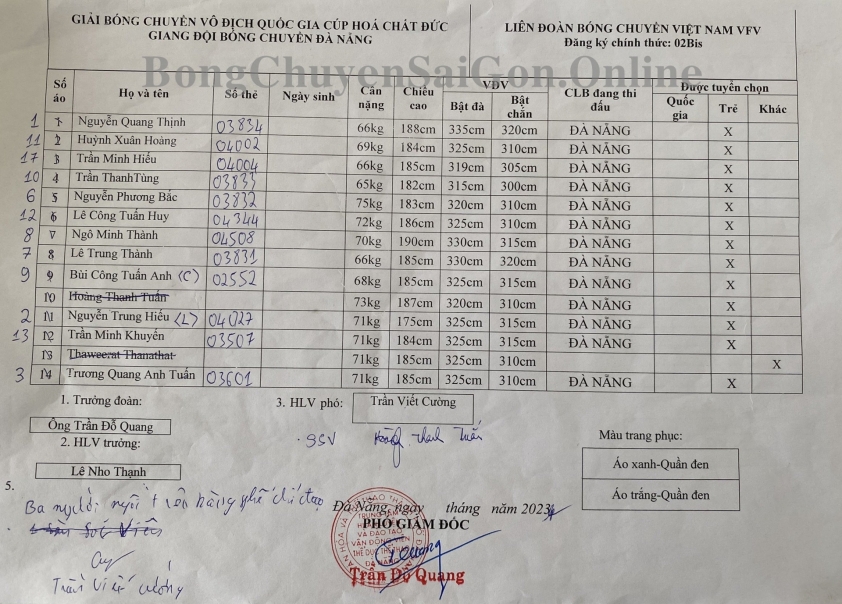 GIẢI BÓNG CHUYỀN VÔ ĐỊCH QUỐC GIA CÚP HOÁ CHẤT ĐỨC
GIANG ĐỘI BÓNG CHUYỀN ĐÀ NẴNG
LIÊN ĐOÀN BÓNG CHUYỀN VIỆT NAM VFV
Đăng ký chính thức: 02Bis
BongChuyenSaiGon.Online
Số áo Họ và tên Số thẻ Ngày sinh Cân nặng Chiều cao VĐV Bật đà Bật chắn CLB đang thi đấu Được tuyển chọn Quốc gia Trẻ Khác
1 1 Nguyễn Quang Thịnh 03834 66kg 188cm 335cm 320cm ĐÀ NẴNG X
11 2 Huỳnh Xuân Hoàng 04002 69kg 184cm 325cm 310cm ĐÀ NẴNG X
17 3 Trần Minh Hiếu 04004 66kg 185cm 319cm 305cm ĐÀ NẴNG X
10 4 Trần ThanhTùng 03833 65kg 182cm 315cm 300cm ĐÀ NẴNG X
6 5 Nguyễn Phương Bắc 03832 75kg 183cm 320cm 310cm ĐÀ NẴNG X
12 6 Lê Công Tuấn Huy 04344 72kg 186cm 325cm 310cm ĐÀ NẴNG X
8 7 Ngô Minh Thành 04508 70kg 190cm 330cm 315cm ĐÀ NẴNG X
7 8 Lê Trung Thành 03831 66kg 185cm 330cm 320cm ĐÀ NẴNG X
9 9 Bùi Công Tuấn Anh (C) 02552 68kg 185cm 325cm 315cm ĐÀ NẴNG X
10 Hoàng Thanh Tuấn 73kg 187cm 320cm 310cm ĐÀ NẴNG X
2 11 Nguyễn Trung Hiếu (L) 04027 71kg 175cm 325cm 315cm ĐÀ NẴNG X
13 12 Trần Minh Khuyến 03507 71kg 184cm 325cm 315cm ĐÀ NẴNG X
13 Thaweerat Thanathat 71kg 185cm 325cm 310cm X
3 14 Trương Quang Anh Tuấn 03601 71kg 185cm 325cm 310cm ĐÀ NẴNG X
1. Trưởng đoàn:
3. HLV phó: Trần Viết Cường
Ông Trần Đỗ Quang
SSV Hoàng Thanh Tuấn
2. HLV trưởng:
Màu trang phục:
Lê Nho Thạnh
Áo xanh-Quần đen
5.
Áo trắng-Quần đen
Ba người ngồi trên hàng ghế chỉ đạo
Đà Nẵng, ngày tháng năm 2023
PHÓ GIÁM ĐỐC
Trần Viết Cường
Trần Đỗ Quang